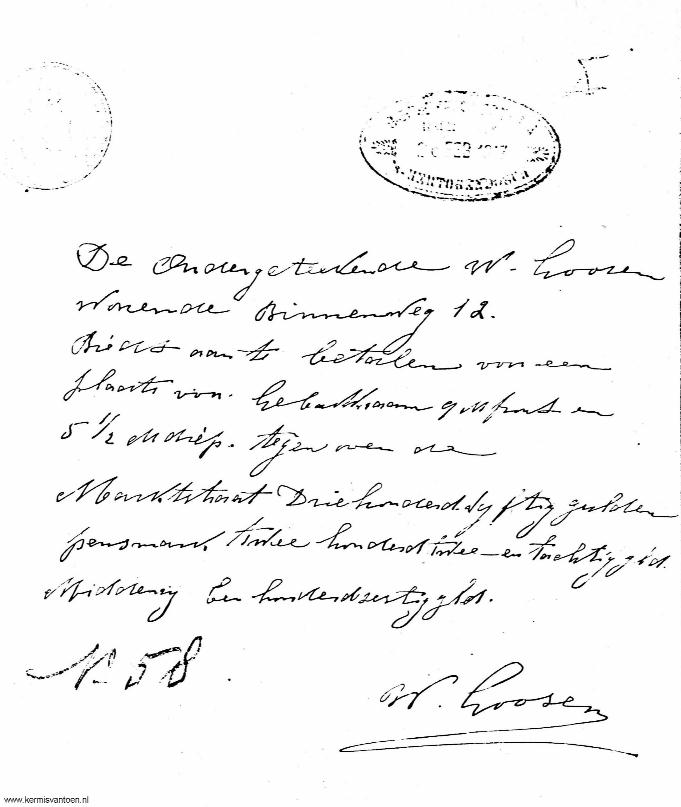 26 FEB 1917
'S-HERTOGENBOSCH
De Ondergeteekende W. Goosen
Wonende Binnenweg 12.
Bieds aan te betaelen von een
plaats von Gebakkraam 9 M front en
5 1/2 M diep. tegen over de
Marktstraat Driehonderd vyftig gulden
pensmark twee honderd twee-en tachtig gld.
Middenry Een honderdzestig gld.
No 58
W. Goosen
www.kermisvantoen.nl